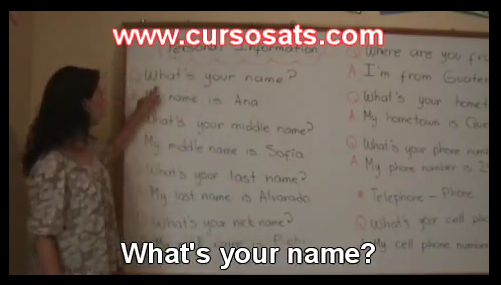 www.cursosats.com
Personal Information
Q What's your name?
name is Ana
What's your middle name?
My middle name is Sofía
What's your last name?
My last name is Alvarado
What's your nick name?
Q Where are you
A I'm from
Q What's your
A My hometown is
Q What's your phone
A My phone number is
* Telephone - Phone
Q What's your cell
My cell phone number
What's your name?